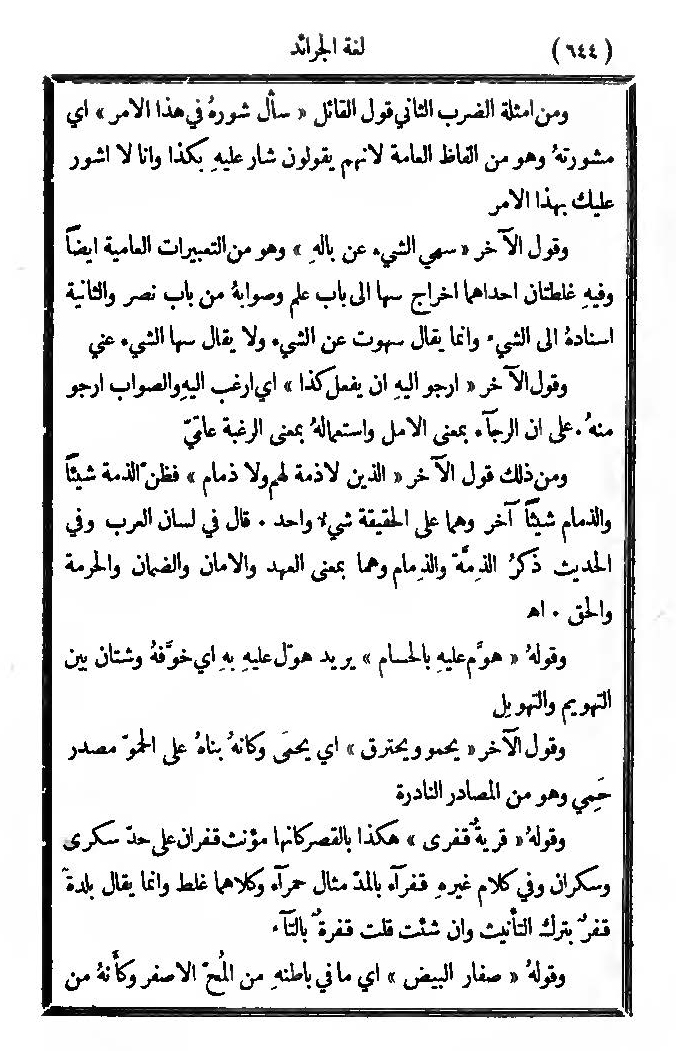 (٦٤٤) لغة الجرائد
ومن امثلة الضرب الثاني قول القائل « سأل شورهُ في هذا الامر » اي
مشورتهُ وهو من الفاظ العامة لانهم يقولون شار عليهِ بكذا وانا لا اشور
عليك بهذا الامر
وقول الآخر « سهي الشيء عن بالهِ » وهو من التعبيرات العامية ايضاً
وفيهِ غلطتان احداهما اخراج سها الى باب علم وصوابهُ من باب نصر والثانية
اسنادهُ الى الشيء وانما يقال سهوت عن الشيء ولا يقال سها الشيء عني
وقول الآخر « ارجو اليهِ ان يفعل كذا » اي ارغب اليهِ والصواب ارجو
منهُ. على ان الرجآء بمعنى الامل واستعمالهُ بمعنى الرغبة عاميّ
ومن ذلك قول الآخر « الذين لا ذمة لهم ولا ذمام » فظن ّ الذمة شيئاً
والذمام شيئاً آخر وهما على الحقيقة شيء واحد ٠ قال في لسان العرب وفي
الحديث ذكرُ الذِمَّة والذِمام وهما بمعنى العهد والامان والضمان والحرمة
والحق ٠ اه
وقولهُ « هوَّم عليهِ بالحسام » يريد هوّل عليهِ بهِ اي خوَّفهُ وشتان بين
التهويم والتهويل
وقول الآخر « يحمو ويحترق » اي يحمَى وكانهُ بناهُ على الحموّ مصدر
حَمِي وهو من المصادر النادرة
وقولهُ « قريةٌ قفرى » هكذا بالقصر كانها مؤنث قفران على حدّ سكرى
وسكران وفي كلام غيرهِ قفرآء بالمدّ مثال حمرآء وكلاهما غلط وانما يقال بلدةٌ
قفرٌ بترك التأنيث وان شئت قلت قفرةٌ بالتآء
وقولهُ « صفار البيض » اي ما في باطنهِ من المُحّ الاصفر وكأنهُ من